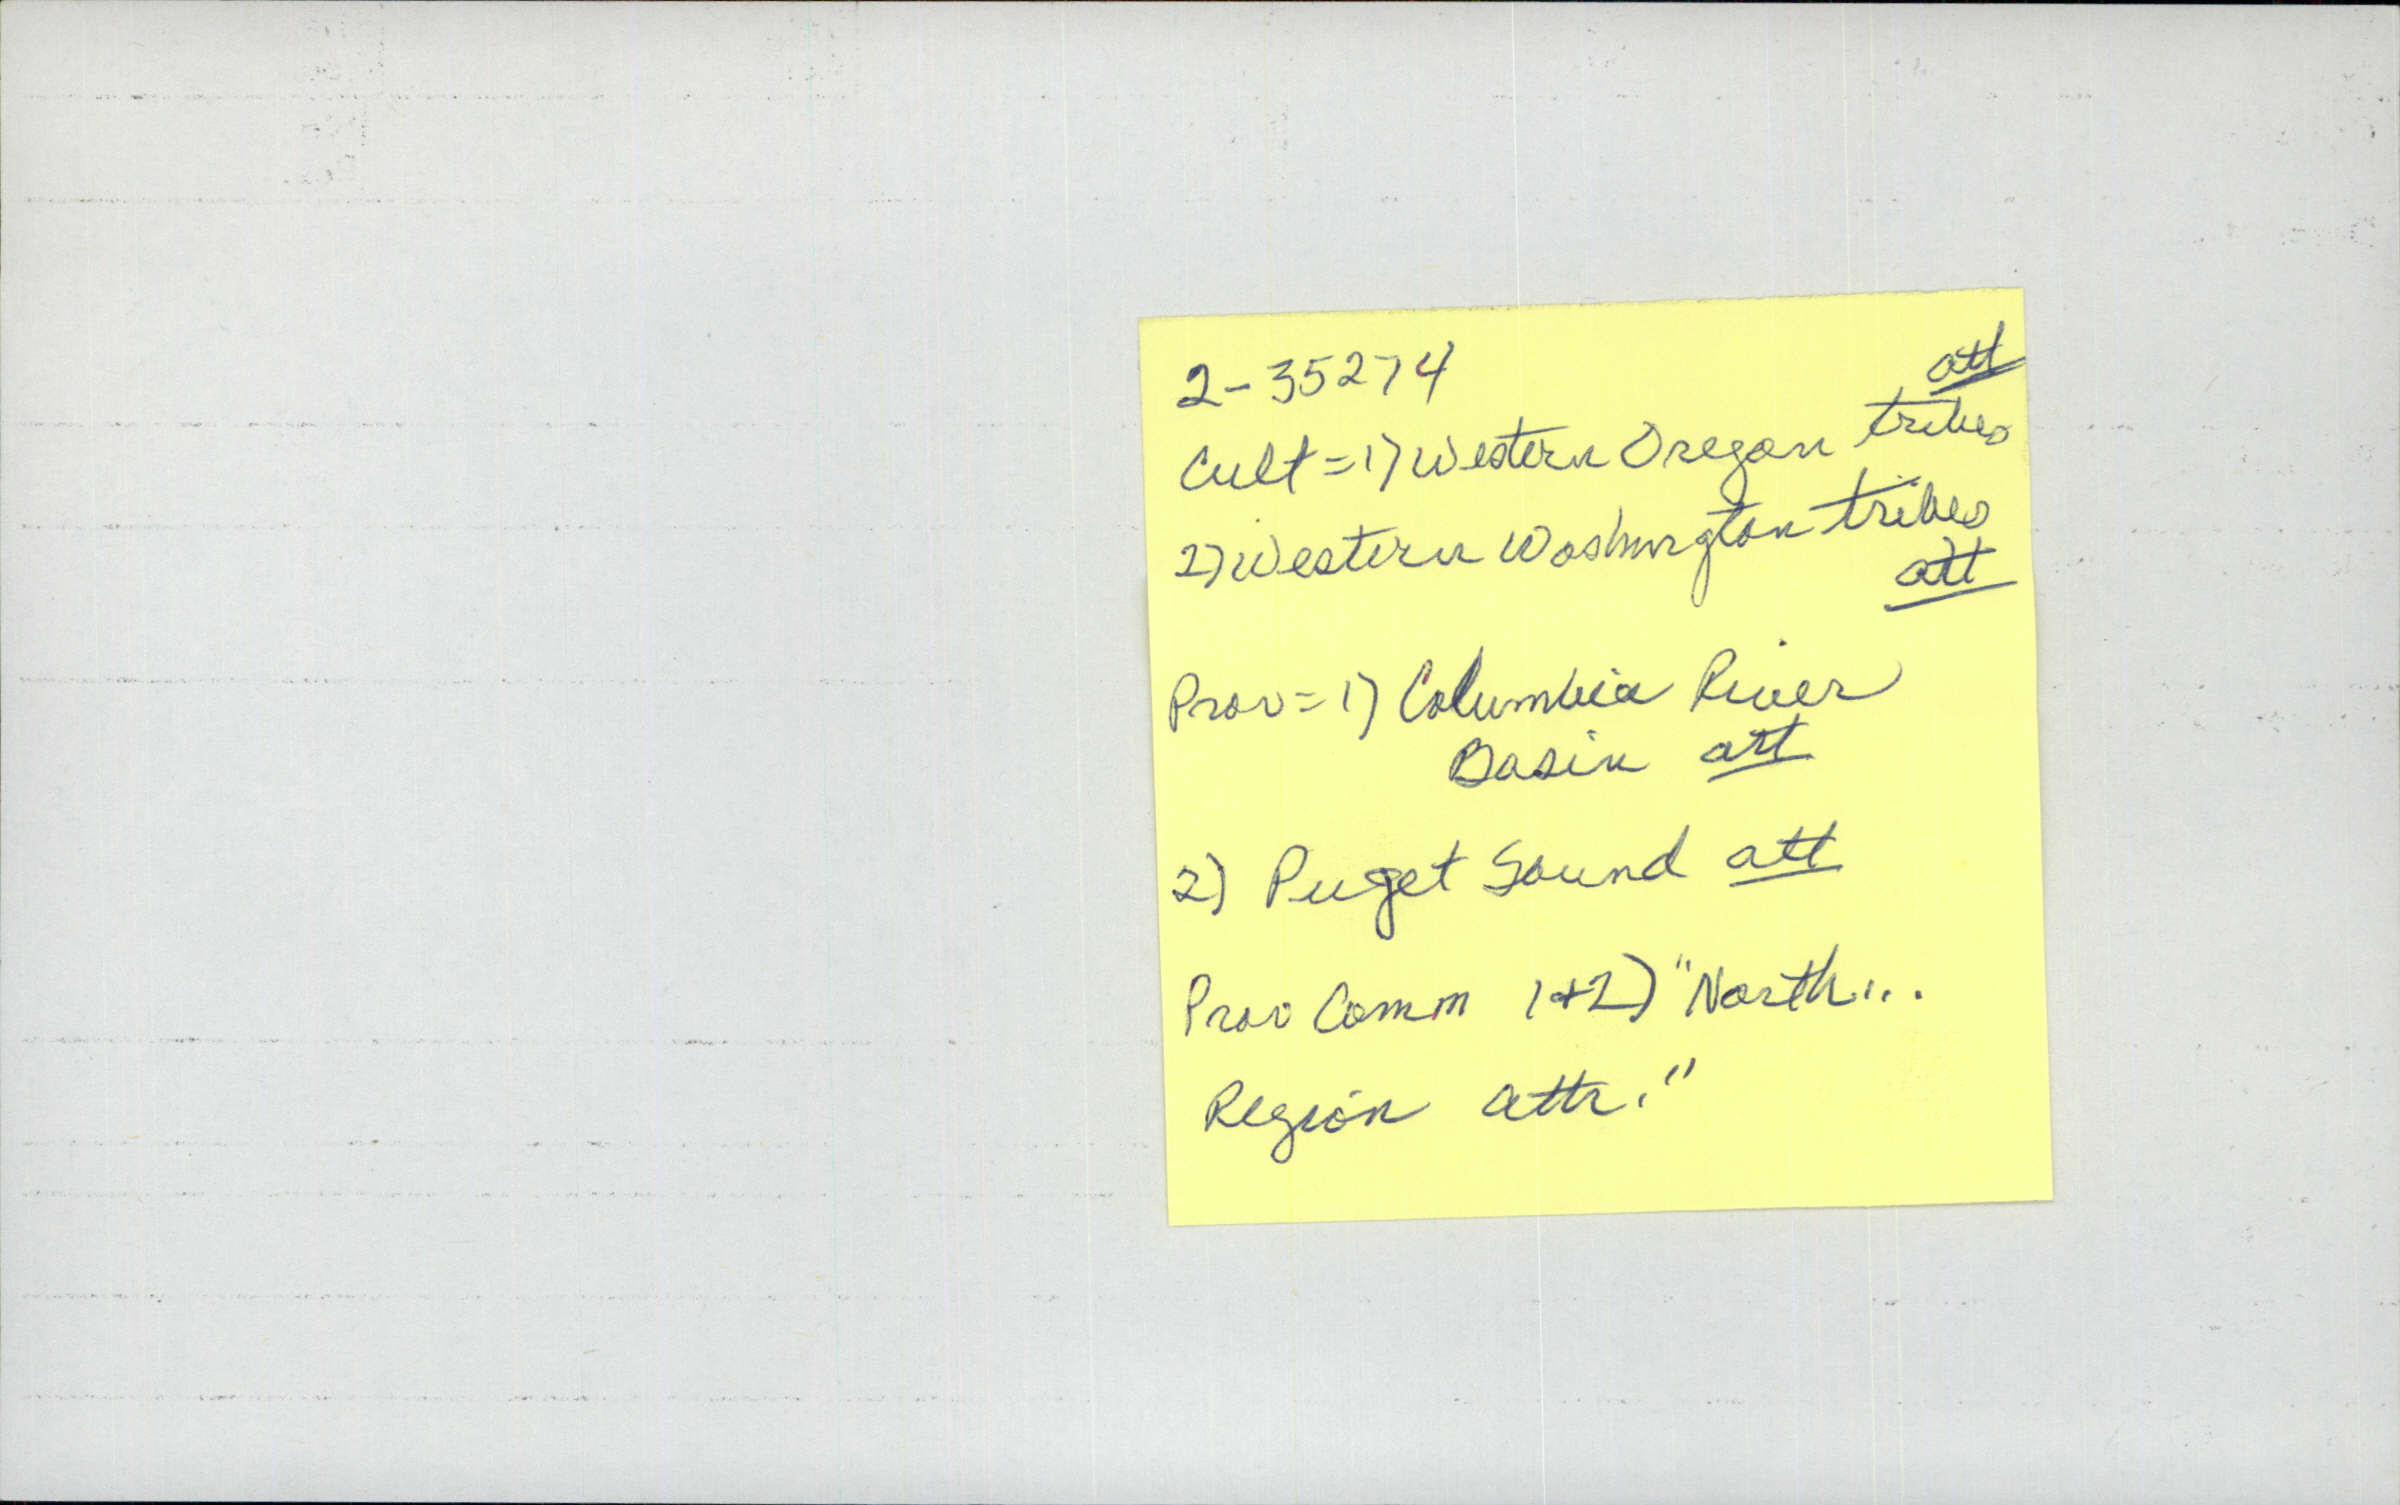 2-35274
att
Cult = 1) Western Oregon tribes
2) Western Washington tribes
att
Prov = 1) Columbia River
Basin att
2) Puget Sound att
Prov Comm 1+2) "North...
Region attr."